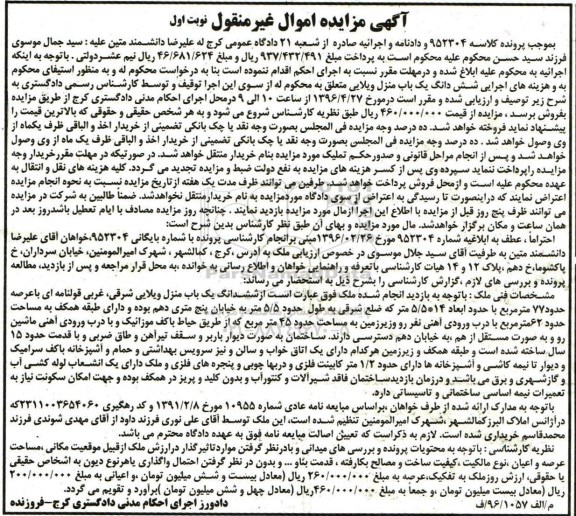 آگهی مزایده اموال غیر منقول نوبت اول
بموجب پرونده کلاسه ۹۵۲۳۰۴ و دادنامه و اجرائیه صادره از شعبه ۲۱ دادگاه عمومی کرج له علیرضا دانشمند متین علیه : سید جمال موسوی
فرزند سید حسن محکوم علیه محکوم است به پرداخت مبلغ ۹۳۷/۴۳۲/۴۹۱ ریال و مبلغ ۴۶/۶۸۱/۶۲۴ ریال نیم عشردولتی . باتوجه به اینکه
اجرائیه به محکوم علیه ابلاغ شده و درمهلت مقرر نسبت به اجرای حکم اقدام ننموده است بنا به درخواست محکوم له و به منظور استیفای محکوم
به و هزینه های اجرایی شش دانگ یک باب منزل ویلایی متعلق به محکوم له از سوی این اجرا توقیف و توسط کارشناس رسمی دادگستری به
شرح زیر توصیف و ارزیابی شده و مقرر است درمورخ ۱۳۹۶/۴/۲۷ از ساعت ۱۰ الی ۹ درمحل اجرای احکام مدنی دادگستری کرج از طریق مزایده
بفروش برسد ، مزایده از قیمت ۴۶۰/۰۰۰/۰۰۰ ریال طبق نظریه کارشناس شروع می شود و به هر شخص حقیقی و حقوقی که بالاترین قیمت را
پیشنهاد نماید فروخته خواهد شد. ده درصد وجه مزایده فی المجلس بصورت وجه نقد یا چک بانکی تضمینی از خریدار اخذ و الباقی ظرف یکماه از
وی وصول خواهد شد . ده درصد وجه مزایده فی المجلس بصورت وجه نقد یا چک بانکی تضمینی از خریدار اخذ و الباقی ظرف یک ماه از وی وصول
خواهد شد و پس از انجام مراحل قانونی و صدورحکم تملیک مورد مزایده بنام خریدار منتقل خواهد شد. در صورتیکه در مهلت مقررخریدار وجه
مزایده راپرداخت ننماید سپرده وی پس از کسر هزینه های مزایده به نفع دولت ضبط و مزایده تجدید می گردد. کلیه هزینه های نقل و انتقال به
عهده محکوم علیه است و ازمحل فروش پرداخت خواهد شد طرفین می توانند ظرف مدت یک هفته از تاریخ مزایده نسبت به نحوه انجام مزایده
اعتراض نمایند که دراینصورت تا رسیدگی به اعتراض ازسوی دادگاه موردمزایده به نام خریدارمنتقل نخواهدشد. ضمنا طالبین به شرکت در مزایده
می توانند ظرف پنج روز قبل از مزایده با اطلاع این اجرا ازمال مورد مزایده بازدید نمایند . چنانچه روز مزایده مصادف با ایام تعطیل باشدروز بعد در
همان ساعت و مکان برگزار خواهدشد. مال مورد مزایده و بهای آن طبق نظر کارشناس بدین شرح است:
احتراما، عطف به ابلاغیه شماره ۹۵۲۳۰۴ مورخ ۱۳۹۶/۰۲/۲۶مبنی برانجام کارشناسی پرونده با شماره بایگانی ۹۵۲۳۰۴،خواهان آقای علیرضا
دانشمند متین به طرفیت آقای سید جلال موسوی در خصوص ارزیابی ملک به آدرس ،کرج ، کمالشهر ، شهرک امیرالمومنین، خیابان سرداران، خ
پاکشوما،خ دهم ،پلاک ۱۲ و ۱۴ هیات کارشناسی باتعرفه و راهنمایی خواهان و اطلاع رسانی به خوانده ،به محل قرار مراجعه و پس از بازدید، مطالعه
پرونده و بررسی های لازم ،گزارش کارشناسی را بشرح ذیل به استحضار می رساند:
مشخصات فنی ملک : باتوجه به بازدید انجام شده ملک فوق عبارت است ازششدانگ یک باب منزل ویلایی شرقی، غربی قولنامه ای باعرصه
حدود۷۷ مترمربع با حدود ابعاد ۱۴*۵/۵ متر که ضلع شرقی به طول حدود ۵/۵متر به خیابان پنج متری دهم بوده و دارای طبقه همکف به مساحت
حدود ۶۲مترمربع با درب ورودی آهنی نفر رو وزیرزمین به مساحت حدود ۴۵مترمربع که از طریق حیاط باکف موزائیک و با درب ورودی آهنی ماشین
رو و به صورت مستقل از هم ،به خیابان دهم دسترسی دارند. ساختمان به صورت دیوار باربر و سقف تیرآهن و طاق ضربی و با قدمت حدود ۱۵
سال ساخته شده است و طبقه همکف و زیرزمین هرکدام دارای یک اتاق خواب و سالن و نیز سرویس بهداشتی و حمام و آشپزخانه باکف سرامیک
و دیوار تا نیمه کاشی و آشپزخانه ها دارای حدود ۱/۲ متر کابینت فلزی و دربها چوبی و پنجره های فلزی و ملک دارای یک انشعاب لوله کشی آب
و گازشهری و برق می باشند و درزمان بازدیدساختمان فاقد شیرآلات و کنتورآب و بدون کلید و پریز در همکف بوده و جهت امکان سکونت نیاز به
تعمیرات نیمه اساسی ساختمانی و تاسیساتی دارد.
باتوجه به مدارک ارائه شده از طرف خواهان ،براساس مبایعه نامه عادی شماره ۱۰۹۵۵ مورخ ۱۳۹۱/۲/۸ و کد رهگیری ۲۳۱۱۰۰۳۶۵۴۰۶۰که
درآژانس املاک البرزکمالشهر ،شهرک امیرالمومنین تنظیم شده است، این ملک توسط آقای علی نوری فرزند داود از آقای مهدی شوندی فرزند
محمدقاسم خریداری شده است. لازم به ذکراست که تعیین اصالت مبایعه نامه فوق به عهده دادگاه محترم می باشد.
نظریه کارشناسی : باتوجه به محتویات پرونده و بررسی های میدانی و بادرنظر گرفتن مواردتاثیرگذار درارزش ملک ازقبیل موقعیت مکانی،مساحت
عرصه و اعیان ،نوع مالکیت ،کیفیت ساخت و مصالح بکاررفته ، قدمت بنا و ... و بدون در نظر گرفتن احتمال واگذاری یاهرنوع دیون به اشخاص حقیقی
یا حقوقی، ارزش روزملک به تفکیک،عرصه به مبلغ ۲۶۰/۰۰۰/۰۰۰ ریال (معادل بیست و شش میلیون تومان ،و اعیانی به مبلغ ۲۰۰/۰۰۰/۰۰۰
ریال (معادل بیست میلیون تومان ،و جمعاً به مبلغ ۴۶۰/۰۰۰/۰۰۰ریال (معادل چهل و شش میلیون تومان )برآورد و تقویم می گردد.
م/الف ۹۶/۱۰۵۷/ف دادورز اجرای احکام مدنی دادگستری کرج-فروزنده